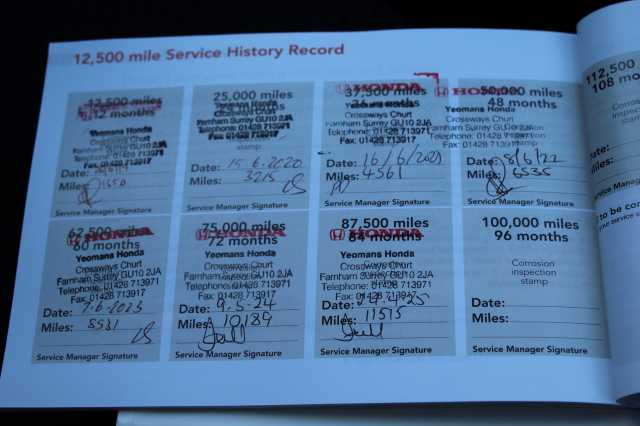 12,500 mile Service History Record
12,500 miles
12 months
Yeomans Honda
Crossways Churt
Farnham Surrey GU10 2JA
Telephone: 01428 713971
Fax: 01428 713917
Date:
Miles: 1650
Service Manager Signature
25,000 miles
Yeomans Honda
Crossways Churt
Farnham Surrey GU10 2JA
Telephone: 01428 713971
Fax: 01428 713917
stamp
Date: 15.6.2020
Miles: 3215
Service Manager Signature
HONDA
37,500 miles
36 months
Yeomans Honda
Crossways Churt
Farnham Surrey GU10 2JA
Telephone: 01428 713971
Fax: 01428 713917
Date: 16/6/2021
Miles: 4561
Service Manager Signature
HONDA
50,000 miles
48 months
Yeomans Honda
Crossways Churt
Farnham Surrey GU10 2JA
Telephone: 01428 713971
Fax: 01428 713917
Date: 8/6/22
Miles: 6535
Service Manager Signature
112,500
108 mo
Date:
Miles:
Service Manager
to be con
HONDA
62,500 miles
60 months
Yeomans Honda
Crossways Churt
Farnham Surrey GU10 2JA
Telephone: 01428 713971
Fax: 01428 713917
Date: 7.6.2023
Miles: 8531
Service Manager Signature
HONDA
75,000 miles
72 months
Yeomans Honda
Crossways Churt
Farnham Surrey GU10 2JA
Telephone: 01428 713971
Fax: 01428 713917
Date: 9.5.24
Miles: 10189
Service Manager Signature
HONDA
87,500 miles
84 months
Yeomans Honda
Crossways Churt
Farnham Surrey GU10 2JA
Telephone: 01428 713971
Fax: 01428 713917
Date:
Miles: 11515
Service Manager Signature
100,000 miles
96 months
Corrosion
inspection
stamp
Date:
Miles:
Service Manager Signature